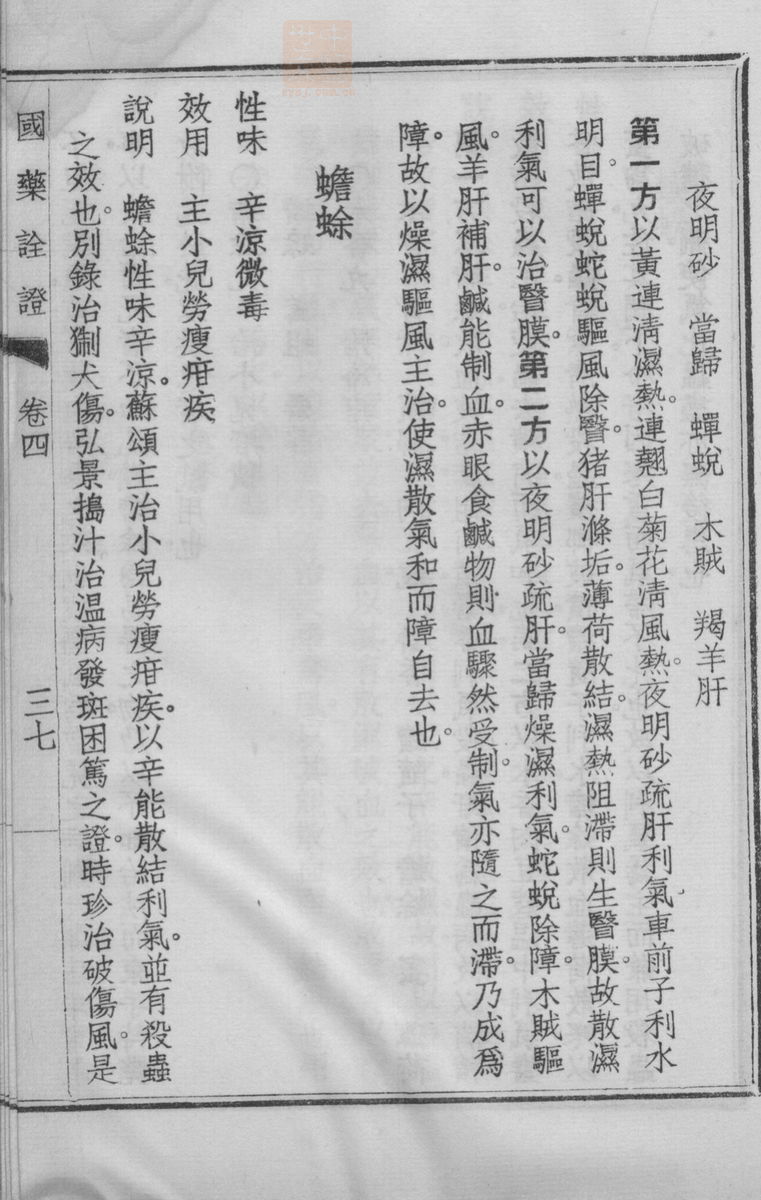 夜明砂　當歸　蟬蛻　木賊　羯羊肝
第一方以黃連淸濕熱。連翹白菊花淸風熱。夜明砂疏肝利氣車前子利水
明目。蟬蛻蛇蛻驅風除瞖。猪肝滌垢。薄荷散結。濕熱阻滯則生瞖膜。故散濕
利氣可以治瞖膜。第二方以夜明砂疏肝。當歸燥濕利氣。蛇蛻除障。木賊驅
風。羊肝補肝。鹹能制血。赤眼食鹹物則血驟然受制。氣亦隨之而滯。乃成爲
障。故以燥濕驅風主治。使濕散氣和而障自去也。
蟾蜍
性味　辛涼微毒
效用　主小兒勞瘦疳疾
說明　蟾蜍性味辛涼。蘇頌主治小兒勞瘦疳疾。以辛能散結利氣。並有殺蟲
之效也。別錄治猘犬傷。弘景搗汁治温病發斑困篤之證。時珍治破傷風。是
國藥詮證　卷四　三七